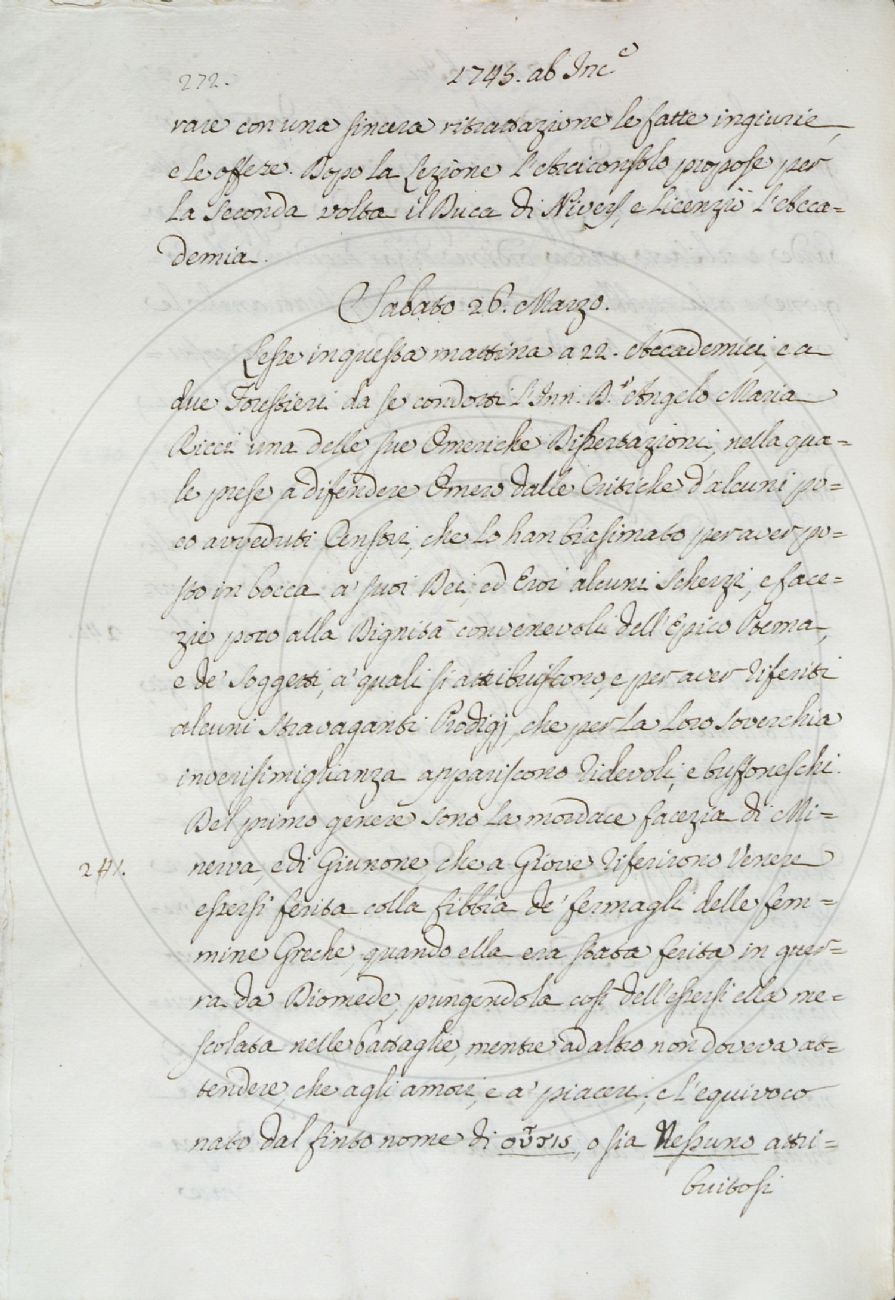 272.
1745. ab Inc.e
vare con una sincera ritrattazione le fatte ingiurie,
e le offese. Dopo la Lezione l'Arciconsolo propose per
la seconda volta il Duca di Nivers, e licenziò l'Acca=
demia.
Sabato 26. Marzo.
Lesse in questa mattina a 22. Accademici, e a
due Forestieri da se condotti l'Inn. D.r Angelo Maria
Ricci una delle sue Omeriche Dissertazioni, nella qua=
le prese a difendere Omero dalle Critiche d'alcuni po=
co avveduti Censori, che lo han biasimato per aver po=
sto in bocca a' suoi Dei, ed Eroi alcuni scherzi, e face=
zie poco alla Dignità convenevoli dell'Epico Poema,
e de' soggetti, a' quali si attribuiscono, e per aver riferiti
alcuni stravaganti Prodigj, che per la loro soverchia
inverisimiglianza appariscono ridevoli, e buffoneschi.
Del primo genere sono la mordace facezia di Mi=
241.
nerva, e di Giunone, che a Giove riferirono Venere
essersi ferita colla fibbia de' fermagli delle fem=
mine Greche, quando ella era stata ferita in guer=
ra da Diomede, pungendola così dell'essersi ella me=
scolata nelle battaglie, mentre ad altro non doveva at=
tendere, che agli amori, e a' piaceri; e l'equivoco
nato dal finto nome di οὖτις, o sia Nessuno attri=
buitosi